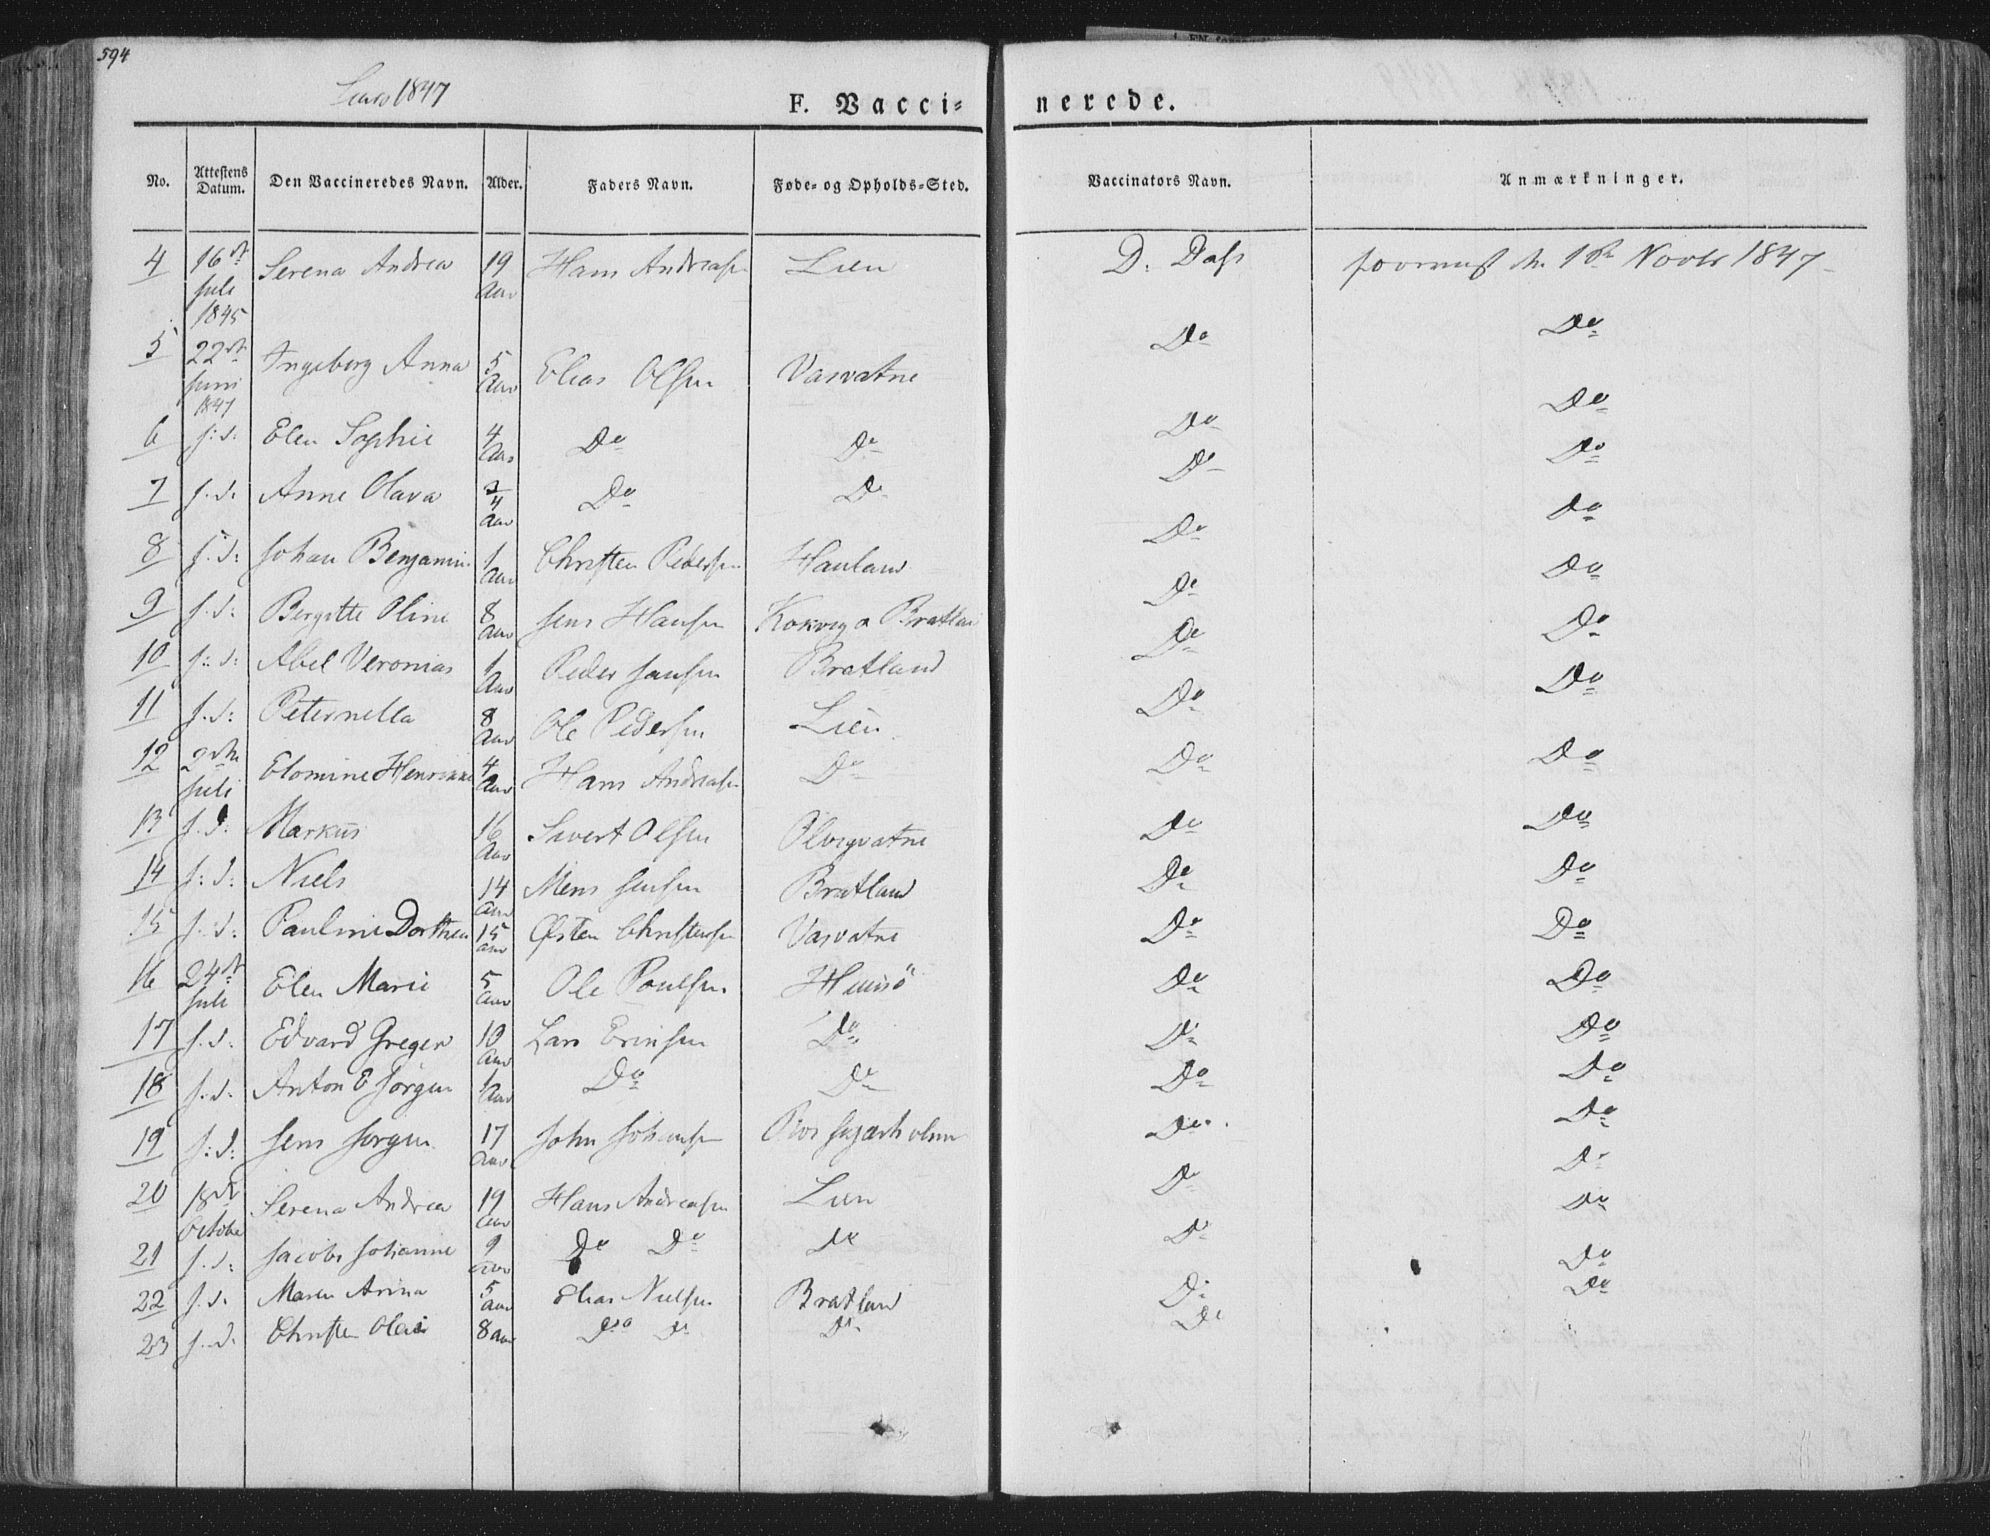 594
1847
F. Vacci=
nerede.
No. Attestens Datum. Den Vaccineredes Navn. Alder. Faders Navn. Føde= og Opholds=Sted. Vaccinators Navn. Anmærkninger.
4 16de Juli 1845 Serena Andrea 19 Aar Hans Andreasen Lien D. Dass 1847
5 22de Juni 1847 Ingeborg Anna 5 Aar Elias Olsen Vasvatne Do Do
6 s: d: Elen Sophie 4 Aar Do Do Do Do
7 s. d. Anne Olava 3/4 Aar Do Do Do Do
8 s. d: Johan Benjamin 1 Aar Christen Pedersen Do Do
9 s. d: Bergitte Oline 8 Aar Jens Hansen Do Do
10 s: d: Abel Veronias 1 Aar Peder Jansen Bratland Do Do
11 s. d: Peternella 8 Aar Ole Pedersen Lien Do Do
12 2den Juli Elomine 4 Aar Hans Andreasen Do Do Do
13 s. d: Markus 16 Aar Sivert Olsen Olvigvatne Do Do
14 s: d: Niels 14 Aar Mens Jensen Bratland Do Do
15 s. d. Pauline Dorthea 15 aar Østen Christensen Vasvatne Do Do
16 24de Juli Elen Marie 5 Aar Ole Poulsen Do Do
17 s. d. Edvard Greger 10 Aar Lars Do Do Do
18 s. d. Anton E Jörgen 1 Aar Do Do Do Do
19 s: d: Jens Jörgen 17 Aar John Johansen Do Do
20 18de October Serena Andrea 19 Aar Hans Andreasen Lien Do Do
21 s. d: Jacobe Johanne 9 Aar Do Do Do Do Do
22 s. d. Maren Anna 5 Aar Elias Nielsen Bratland Do Do
23 s. d. Christen 8 aar Do Do Do Do Do